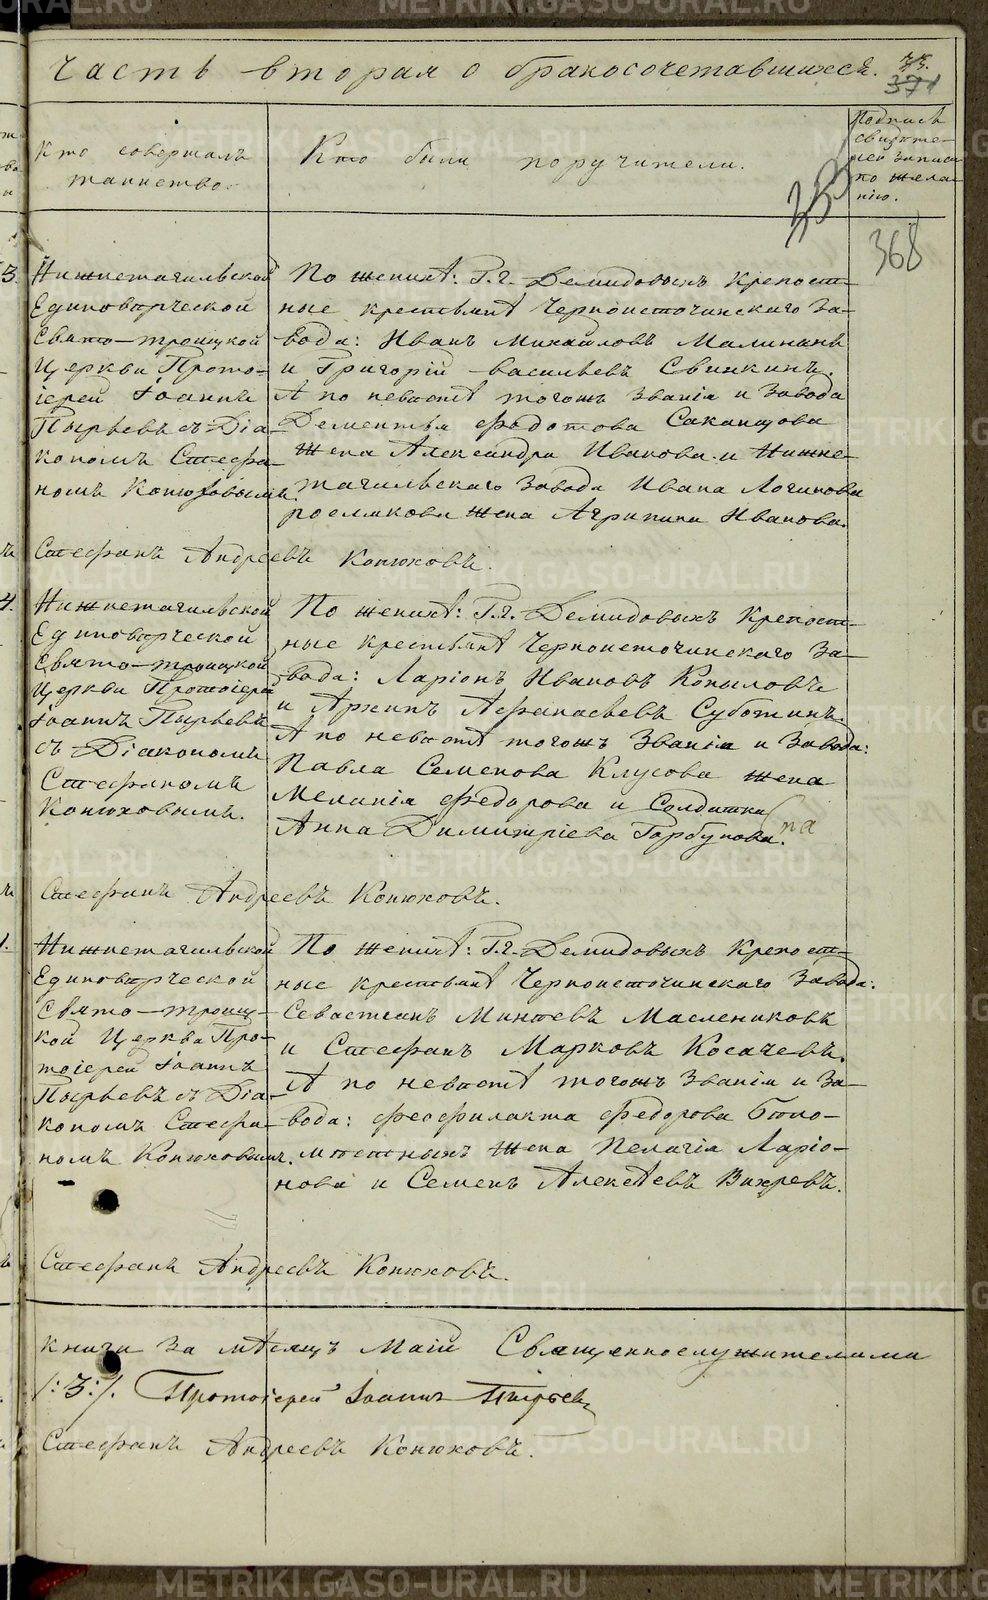 Часть вторая о бракосочетавшихся.
371
Кто совершалъ
таинство.
Кто были поручители.
Подпись
свидѣте-
лей записи
по жела-
нію.
368
3. Нижнетагильской
Единовѣрческой
Свято-троицкой
Церкви Прото-
іерей Іоаннъ
Пырьевъ съ Діа-
кономъ Стефа-
номъ Конюховымъ.
По женихѣ: Г.г. Демидовыхъ Крепост-
ные крестьянѣ Черноисточинскаго За-
вода: Иванъ Михайловъ Малинанъ
и Григорій Васильевъ Свинкинъ.
А по невѣстѣ тогожъ Званія и Завода
Дементья Федотова Саканцова
Жена Александра Иванова и Нижне-
тагильскаго Завода Ивана Логинова
Рослякова Жена Агрипина Иванова.
Стефанъ Андреевъ Конюховъ.
4. Нижнетагильской
Единовѣрческой
Свято-троицкой
Церкви Протоіерей
Іоаннъ Пырьевъ
съ Діакономъ
Стефаномъ
Конюховымъ.
По женихѣ: Г.г. Демидовыхъ Крепост-
ные крестьянѣ Черноисточинскаго За-
вода: Ларіонъ Ивановъ Копыловъ
и Архипъ Афанасьевъ Суботинъ.
А по невѣстѣ тогожъ Званія и Завода:
Павла Семенова Клусова жена
Меланія Федорова и Солдатка
Анна Димитріева Горбунова. на
Стефанъ Андреевъ Конюховъ.
1. Нижнетагильской
Единовѣрческой
Свято-троиц-
кой Церкви Про-
тоіерей Іоаннъ
Пырьевъ съ Діа-
кономъ Стефа-
номъ Конюховымъ.
По женихѣ: Г.г. Демидовыхъ Крепост-
ные крестьянѣ Черноисточинскаго Завода:
Севастьянъ Минѣевъ Маслениковъ
и Стефанъ Марковъ Косачевъ.
А по невѣстѣ тогожъ Званія и За-
вода: Феофилакта Федорова Бѣло-
мѣстныхъ Жена Пелагія Ларіо-
нова и Семенъ Алексѣевъ Вихревъ.
Стефанъ Андреевъ Конюховъ.
книги За мѣсяцъ Маій Священнослужителями
/:3:/. Протоіерей Іоаннъ Пырьевъ
Стефанъ Андреевъ Конюховъ.
METRIKI.GASO-URAL.RU